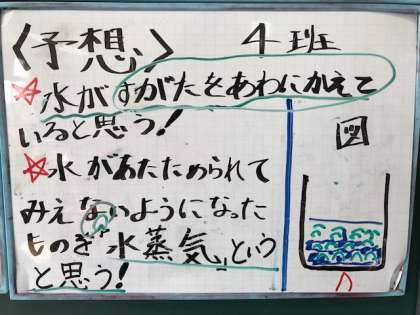 〈予想〉 4班
☆水がすがたをあわにかえて
いると思う!
図
☆水があたためられて
みえないようになった
ものを「水蒸気」という
と思う!